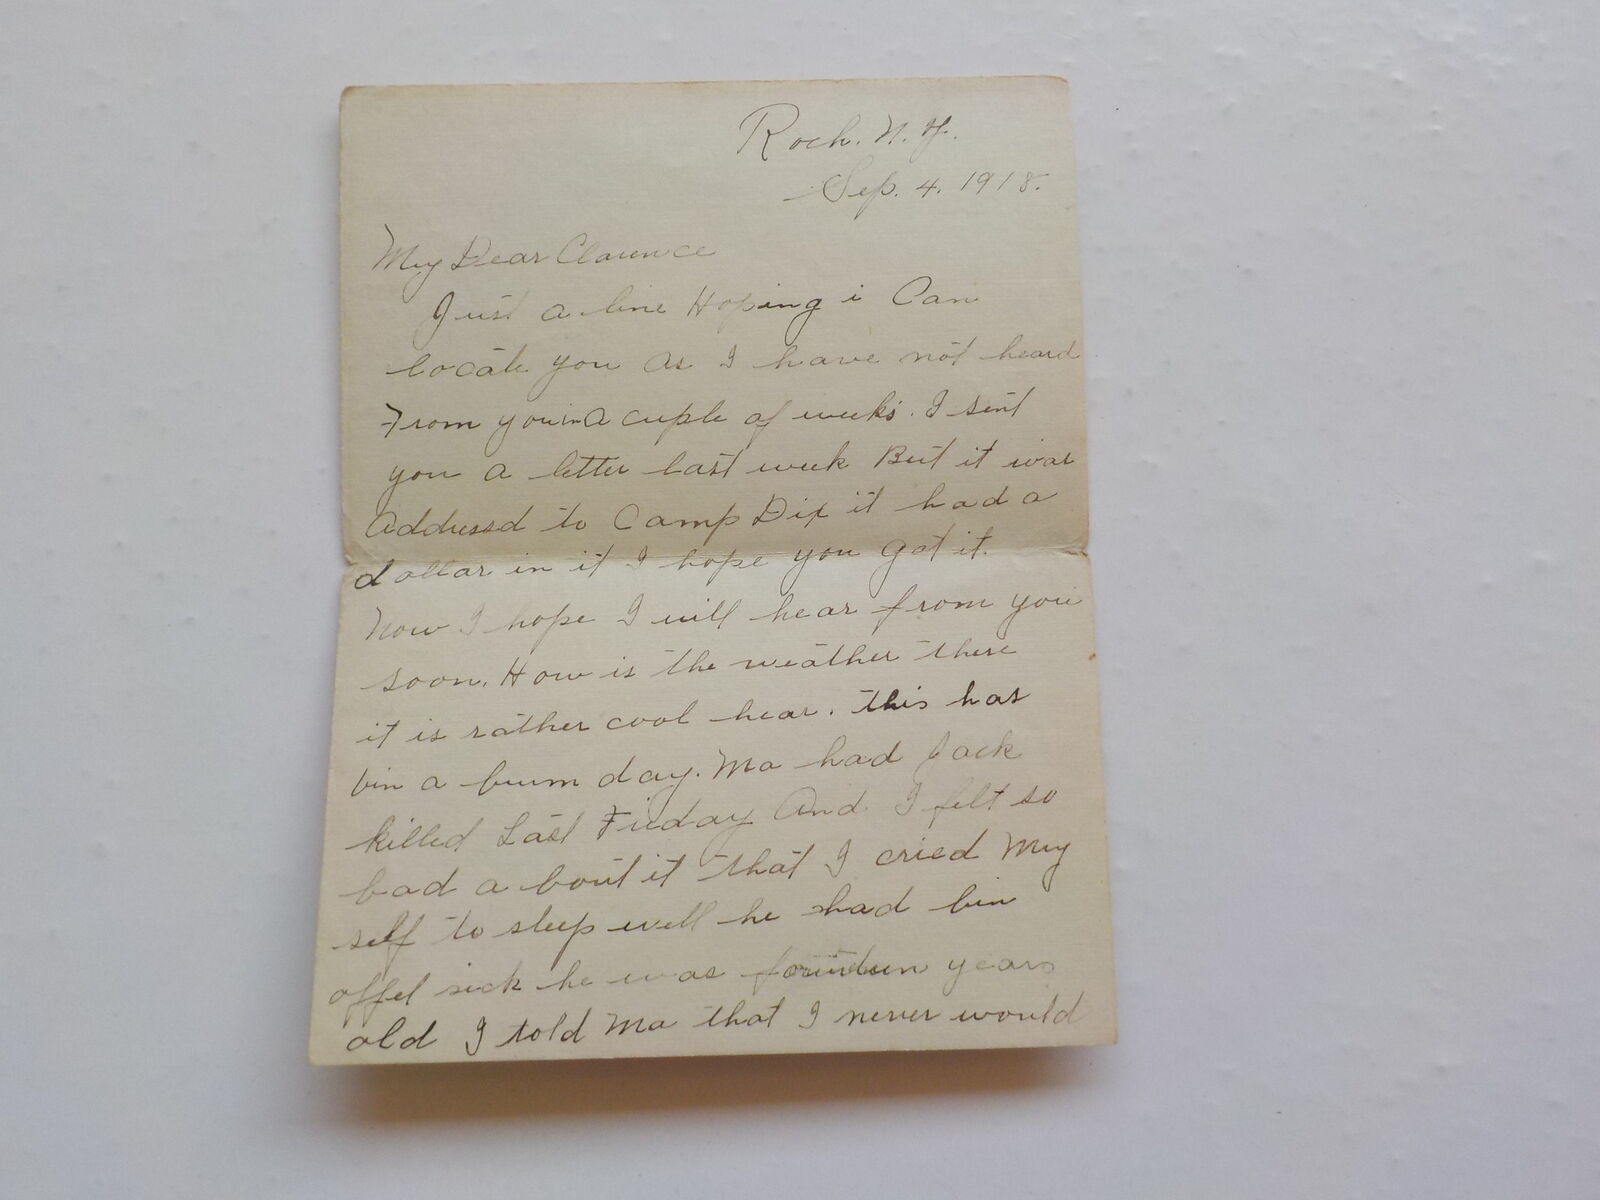 Roch. N. Y.
Sep. 4. 1918.
My Dear Clarence
Just a line Hoping i Can
locate you as I have not heard
From you in a cuple of weeks. I sent
you a letter last week But it was
Addressd to Camp Dix it had a
dollar in it I hope you got it.
Now I hope I will hear from you
soon. How is the weather there
it is rather cool hear. this has
bin a bum day. Ma had Jack
killed Last Friday And I felt so
bad a bout it that I cried My
self to sleep well he had bin
offel sick he was years
old I told Ma that I never would